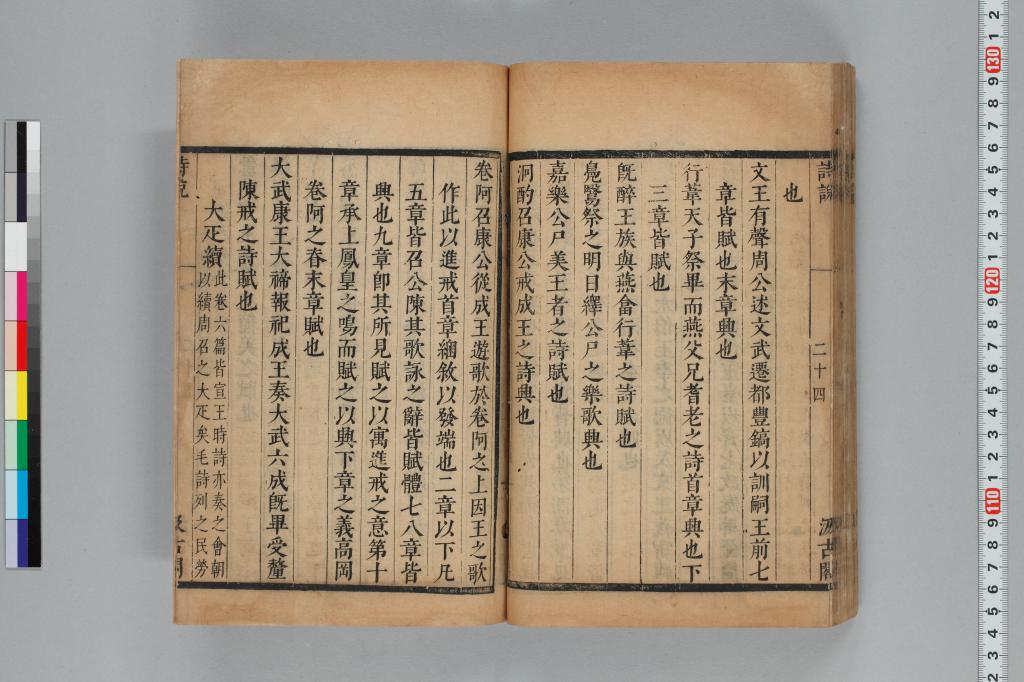 也
文王有聲周公述文武遷都豐鎬以訓嗣王前七
章皆賦也末章興也
行葦天子祭畢而燕父兄耆老之詩首章興也下
三章皆賦也
旣醉王族與燕畣行葦之詩賦也
鳧鷖祭之明日繹公尸之樂歌興也
嘉樂公尸美王者之詩賦也
泂酌召康公戒成王之詩興也
卷阿召康公從成王遊歌於卷阿之上因王之歌
作此以進戒首章緫敘以發端也二章以下凡
五章皆召公陳其歌詠之辭皆賦體七八章皆
興也九章卽其所見賦之以寓進戒之意第十
章承上鳳皇之鳴而賦之以興下章之義高岡
卷阿之春末章賦也
大武康王大禘報祀成王奏大武六成旣畢受釐
陳戒之詩賦也
大疋續此卷六篇皆宣王時詩亦奏之會朝
以續周召之大疋矣毛詩列之民勞
二十四
汲古閣